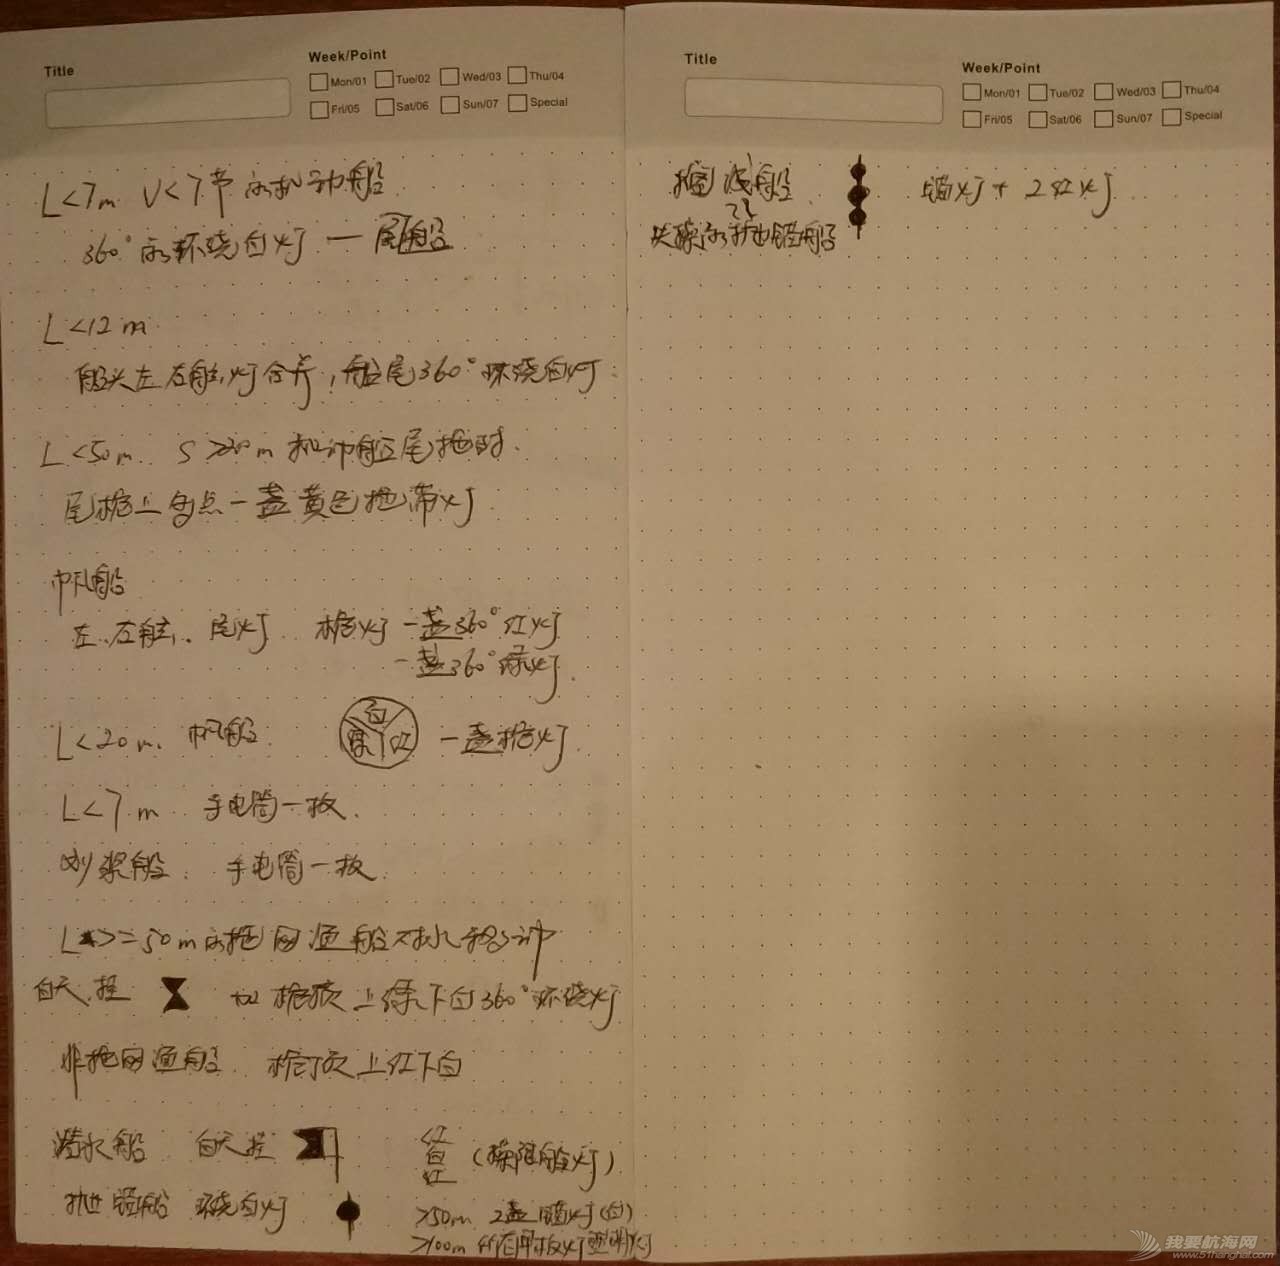 Title
Week/Point
Mon/01 Tue/02 Wed/03 Thu/04
Fri/05 Sat/06 Sun/07 Special
L<7m V<7节的机动船
360°的环绕白灯 — 尾船
L<12m
船头左右舷灯合并,船尾360°环绕白灯
L<50m S>20m 机动船尾拖时.
尾桅上多点一盏黄色拖带灯
帆船
左.右舷.尾灯 桅灯 一盏360°红灯
一盏360°绿灯
L<20m 帆船 白 绿 红 一盏桅灯
L<7m 手电筒一枚.
划桨船. 手电筒一枚.
L>=50m的拖网渔船 移动
白天挂 桅顶上绿下白360°环绕灯
非拖网渔船 桅顶上红下白
潜水船 白天挂
红
白
红
(操限船灯)
抛锚船 环绕白灯
>50m 2盏锚灯(白)
>100m 甲板灯 照明灯
Title
Week/Point
Mon/01 Tue/02 Wed/03 Thu/04
Fri/05 Sat/06 Sun/07 Special
搁浅船 锚灯+2红灯
抛锚船
我要航海网
www.51hanghai.com